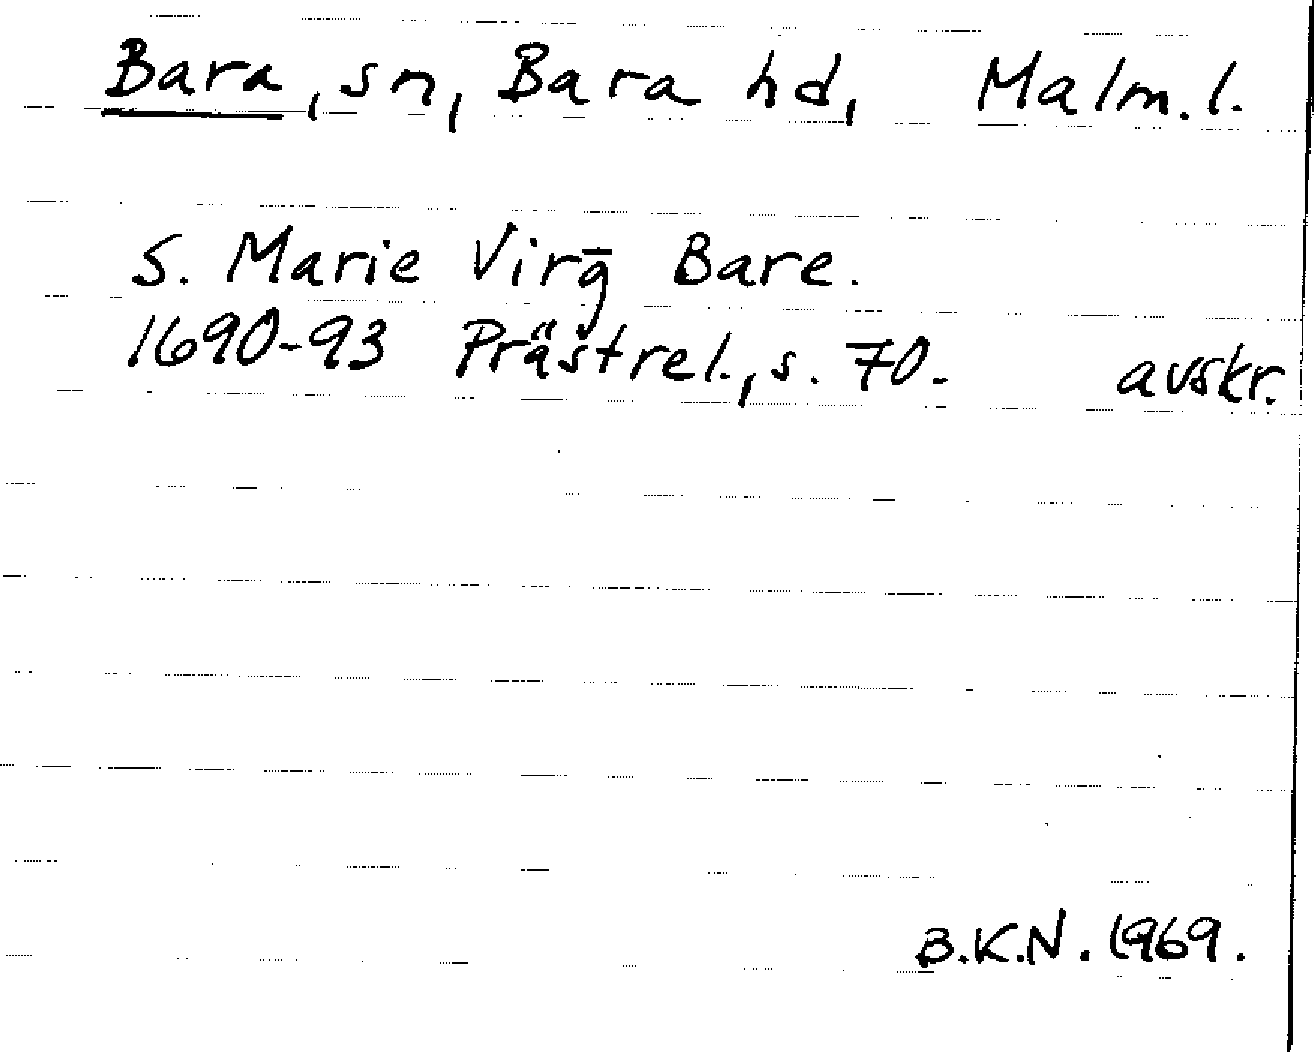 Bara, sn, Bara hd, Malm. l.
S. Marie Virḡ Bare.
1690-93 Prästrel., s. 70. avskr.
B.K.N. 1969.